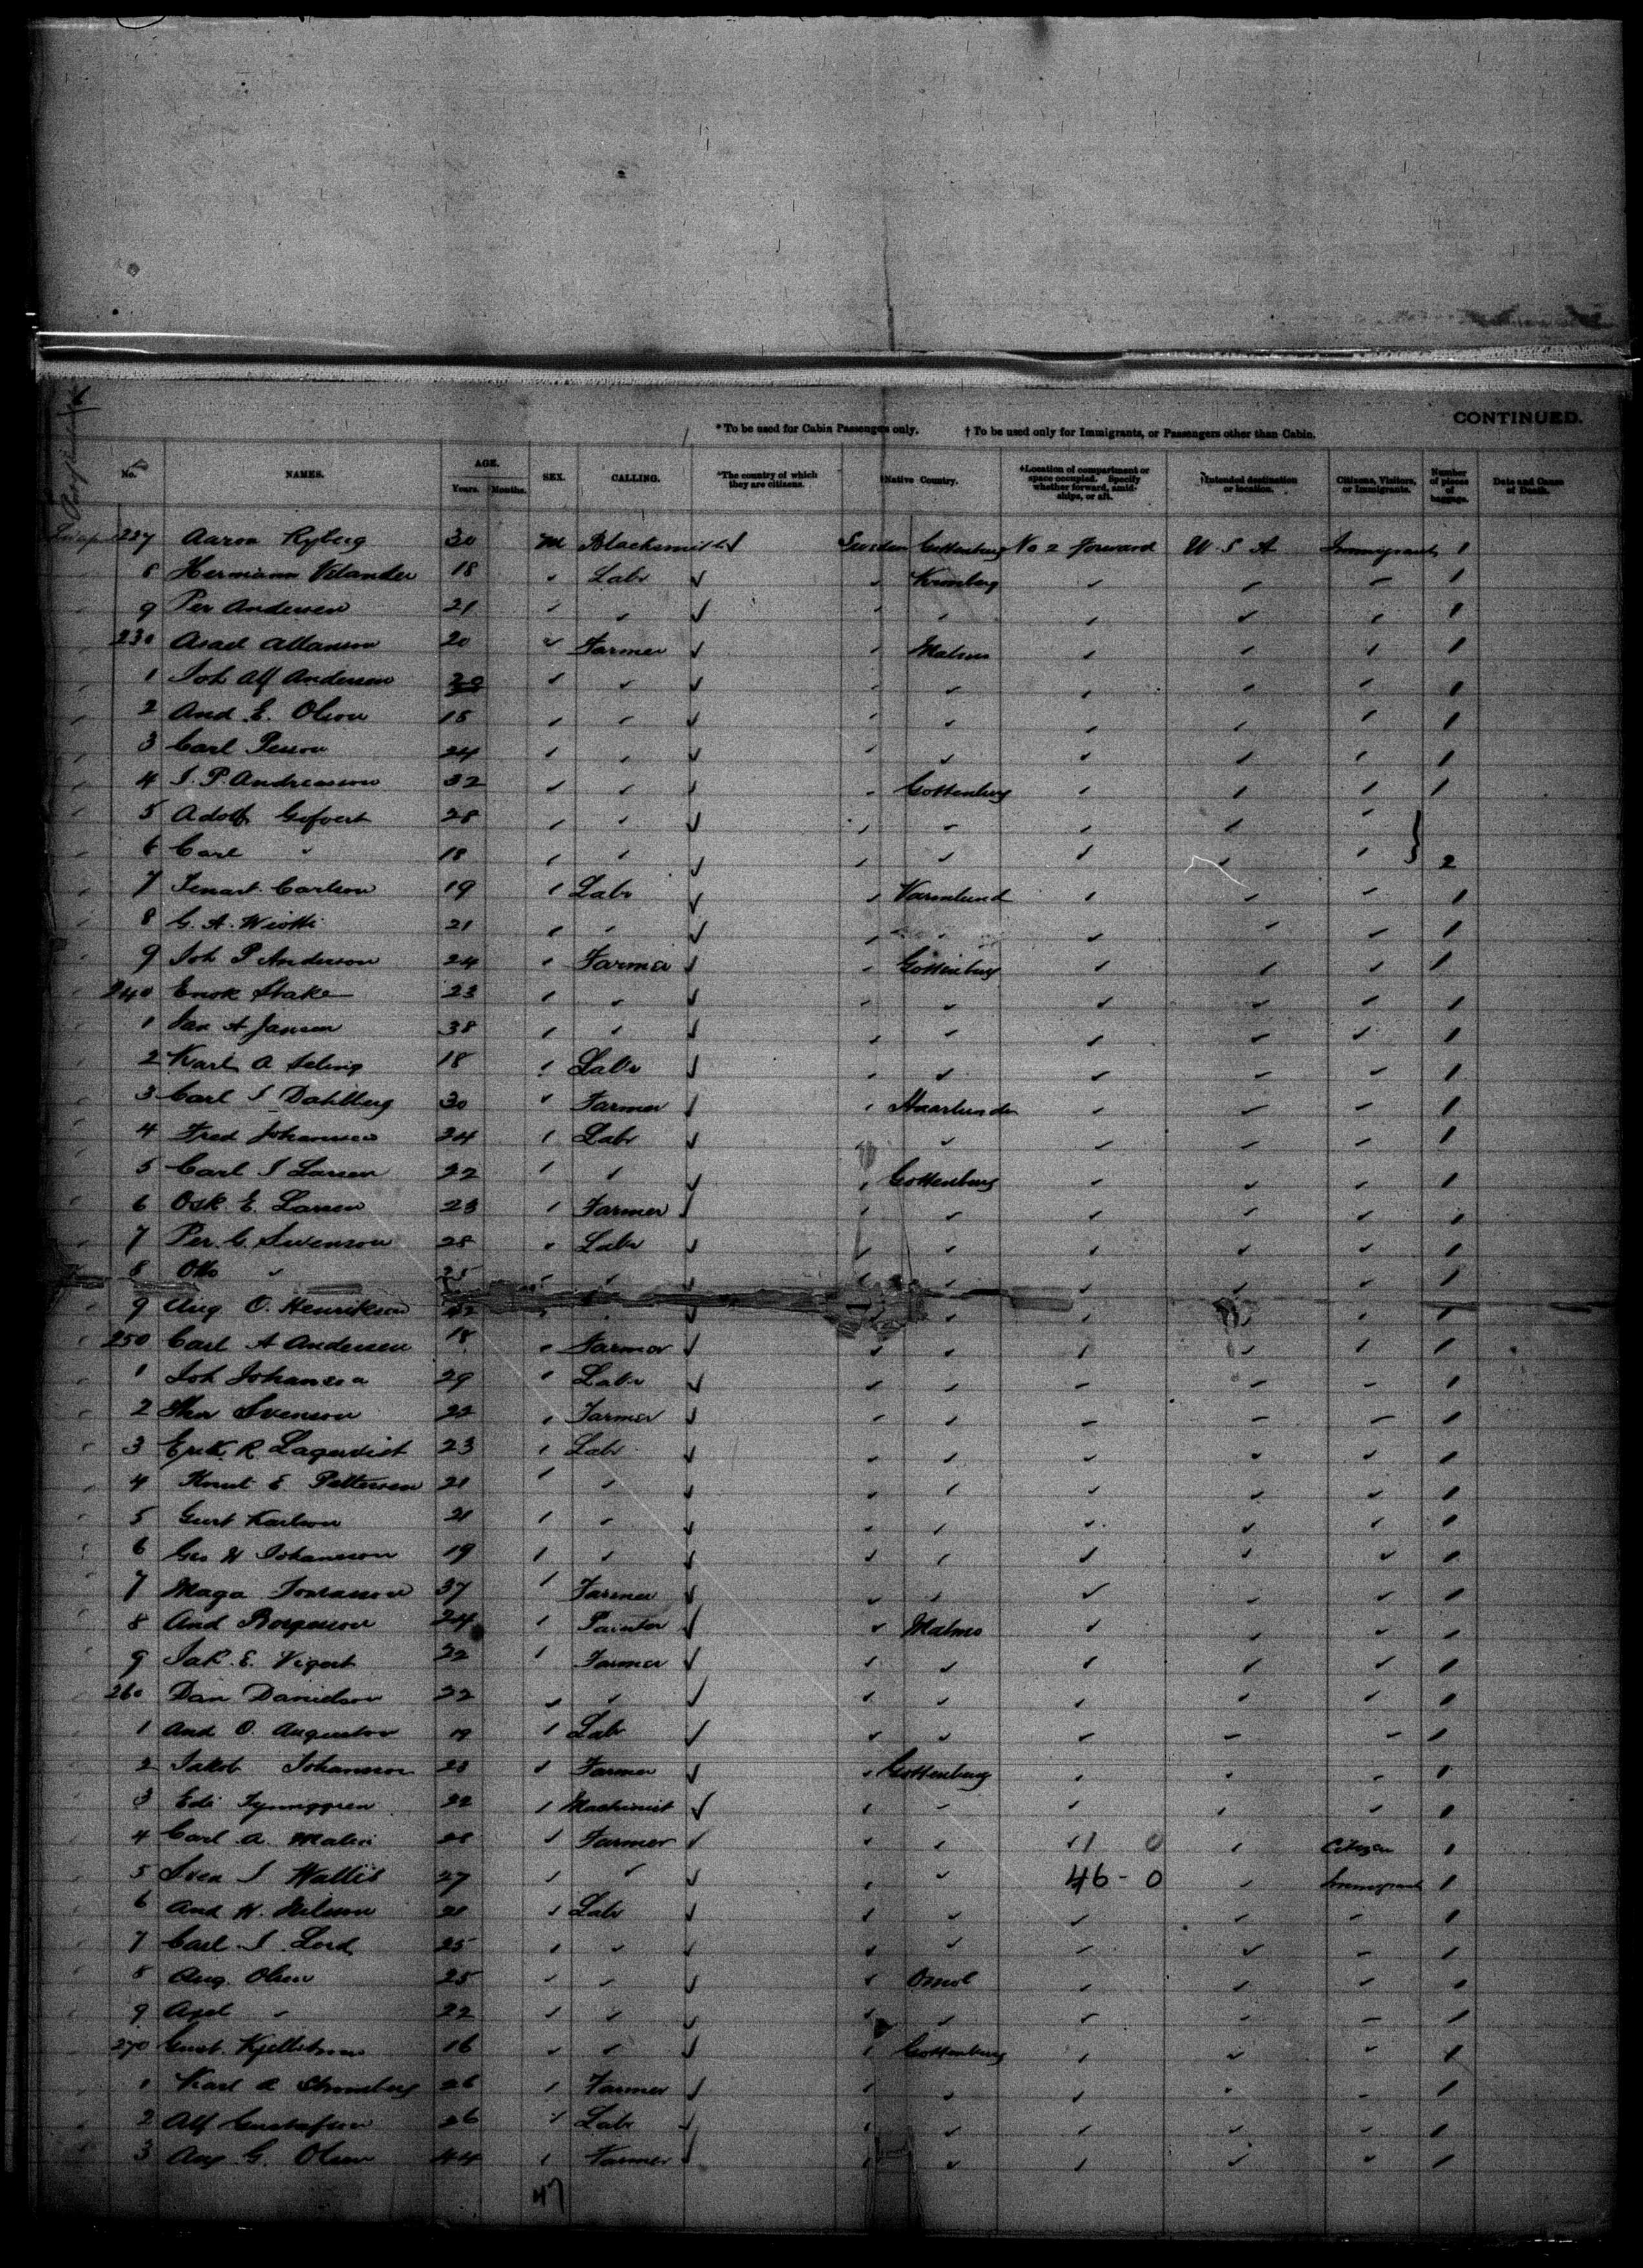 CONTINUED.
*To be used for Cabin Passengers only. † To be used only for Immigrants, or Passengers other than Cabin.
No. NAMES. AGE. Years. Months. SEX. CALLING. *The country of which they are citizens. †Native Country. †Location of compartment or space occupied. Specify whether forward, amidships, or aft. †Intended destination or location. Citizens, Visitors, or Immigrants. Number of pieces of baggage. Date and Cause of Death.
227 Aaron Ryberg 30 M Blacksmith ✓ Sweden Gottenburg No 2 Forward U.S.A Immigrant 1
8 Hermann Vilander 18 " Labr ✓ " Kronberg " " " 1
9 Per Andersen 21 " " ✓ " " " " " 1
230 Asael Allanson 20 " Farmer ✓ " Malmo " " " 1
1 Joh Alf Anderson 20 " " ✓ " " " " " 1
2 And. E. Olson 18 " " ✓ " " " " " 1
3 Carl Person 24 " " ✓ " " " " " 1
4 J. P. Andreasson 32 " " ✓ " Gottenburg " " " 1
5 Adolf Gefvert 28 " " ✓ " " " " "
6 Carl " 18 " " ✓ " " " " " 2
7 Lenart Carlson 19 " Labr ✓ " Varmlund " " " 1
8 G. A. 21 " " ✓ " " " " " 1
9 Joh P Anderson 24 " Farmer ✓ " Gottenburg " " " 1
240 Enok Stake 23 " " ✓ " " " " " 1
1 Jan A Jansen 38 " " ✓ " " " " " 1
2 Karl A Seling 18 " Labr ✓ " " " " " 1
3 Carl J Dahlberg 30 " Farmer ✓ " " " " 1
4 Fred Johansen 24 " Labr ✓ " " " " " 1
5 Carl J Larsen 22 " " ✓ " Gottenburg " " " 1
6 Osk. E. Larsen 23 " Farmer ✓ " " " " " 1
7 Per. G. Swenson 28 " Labr ✓ " " " " " 1
8 Otto " 25 " " ✓ " " " " " 1
9 Aug. O. Henrikson " " ✓ " " " " " 1
250 Carl A Andersen 18 " Farmer ✓ " " " " " 1
1 Joh Johansen 29 " Labr ✓ " " " " " 1
2 Svenson 22 " Farmer ✓ " " " " " 1
3 Erik R. Lagervist 23 " Labr ✓ " " " " " 1
4 Knut E Pettersen 21 " " ✓ " " " " " 1
5 Gust Karlson 21 " " ✓ " " " " " 1
6 Geo H Johansson 19 " " ✓ " " " " " 1
7 Maga Tomasson 37 " Farmer ✓ " " " " " 1
8 And Borgeson 24 " Painter ✓ " Malmo " " " 1
9 Jak. E. Vigert 22 " Farmer ✓ " " " " " 1
260 Dan Danielson 22 " " ✓ " " " " " 1
1 And O. Auguston 19 " Labr ✓ " " " " " 1
2 Jakob Johansson 23 " Farmer ✓ " Gottenburg " " " 1
3 Edi 22 " Machinist ✓ " " " " " 1
4 Carl A. Malin " Farmer ✓ " " 11 0 " Citizen 1
5 Sven J Wallis 27 " " " " 46 - 0 " Immigrant 1
6 And H. Nilsson " Labr ✓ " " " " " 1
7 Carl J. Lord 25 " " ✓ " " " " " 1
8 Aug. Olsen 25 " " ✓ " " " " 1
9 Axel " 22 " " ✓ " " " " " 1
270 Gust. Kjellstrom 16 " " ✓ " Gottenburg " " " 1
1 Karl A Stromberg 26 " Farmer ✓ " " " " " 1
2 Alf Gustafson 26 " Labr ✓ " " " " " 1
3 Aug G. Olsen 44 " Farmer ✓ " " " " " 1
47